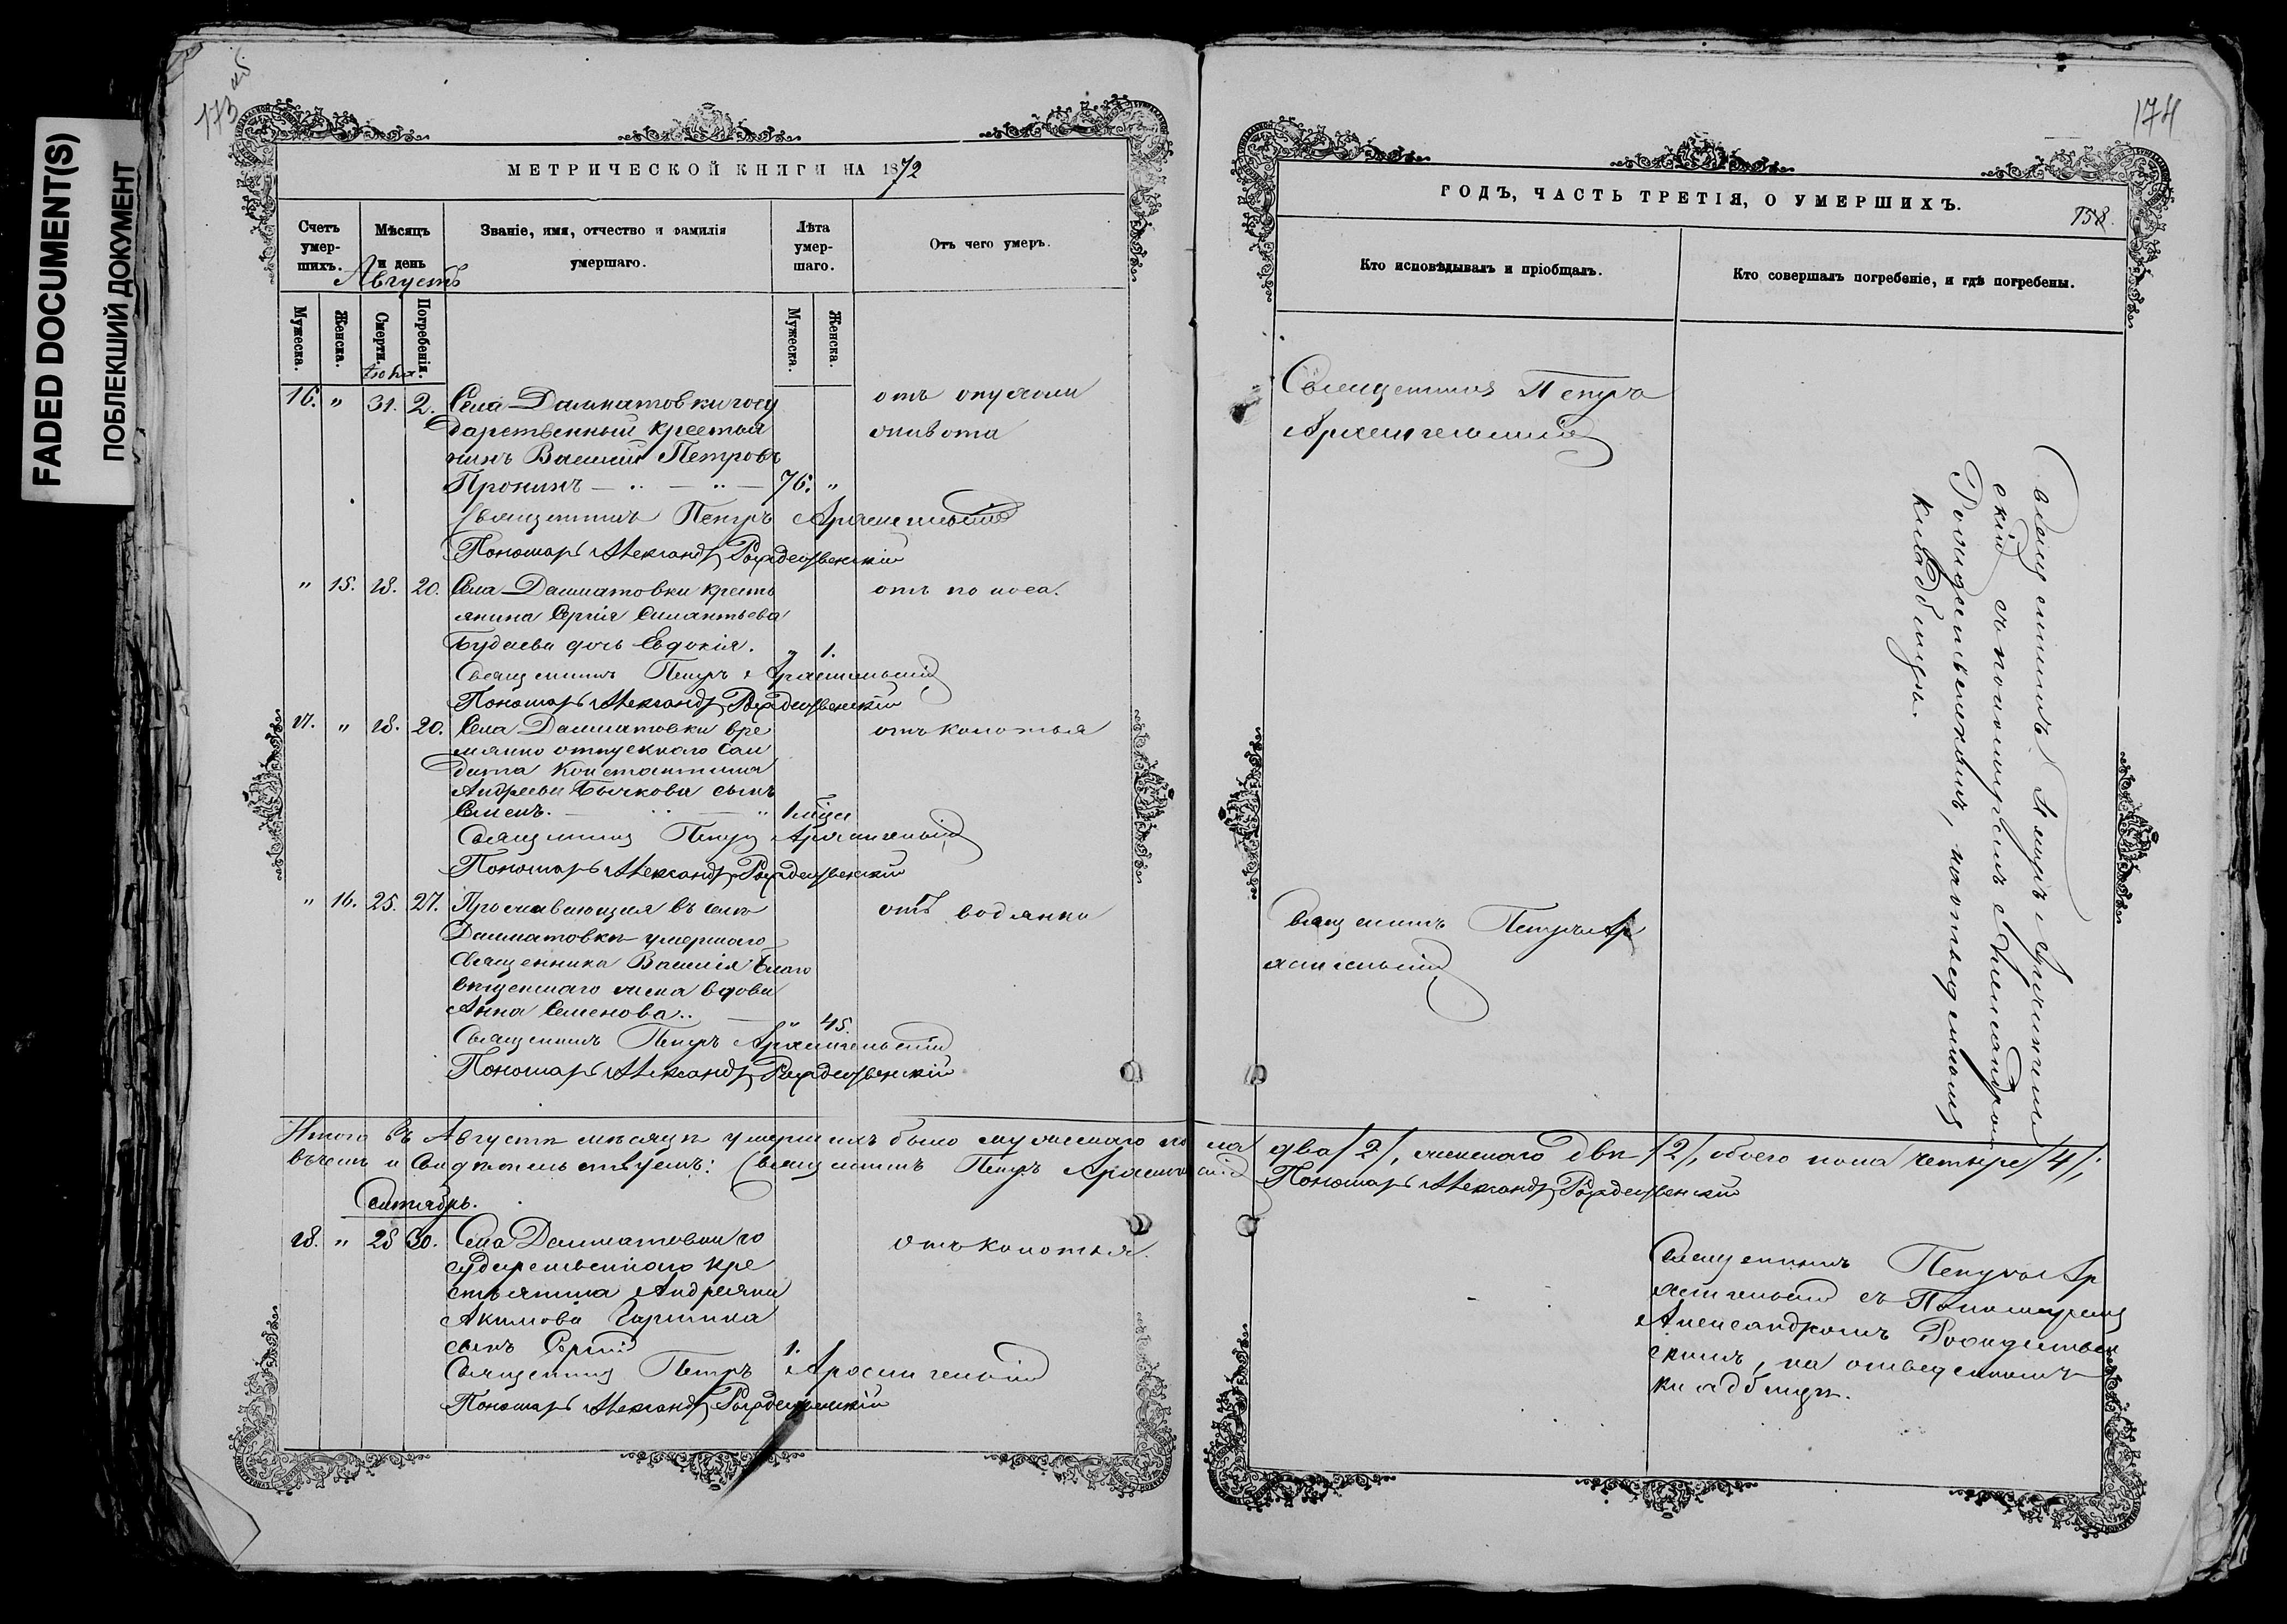 FADED DOCUMENT(S)
ПОБЛЕКШИЙ ДОКУМЕНТ
173 об
МЕТРИЧЕСКОЙ КНИГИ НА 1872
Счетъ умер-шихъ.
Мѣсяцъ и день
Званіе, имя, отчество и фамилія умершаго.
Лѣта умер-шаго.
Отъ чего умеръ.
Августъ
Мужеска.
Женска.
Смерти.
Погребенія.
Мужеска.
Женска.
Іюля
16. " 31. 2. Села Далматовки госу
отъ опухоли
дарственный крестья
живота
нинъ Василій Петровъ
Пронинъ — .. — .. — 76. "
Священникъ Петръ Архангельскій
Пономарь Александръ Рождественскій
" 15. 18. 20. Села Далматовки кресть
отъ поноса.
янина Сергія
Будаева дочь Евдокія. " 1.
Священникъ Петръ Архангельскій
Пономарь Александръ Рождественскій
17. " 18. 20. Села Далматовки вре
отъ колотья
мянно отпускнаго сол
дата Константина
Андреева Бычкова сынъ
Семенъ. 1 мѣся
Священникъ Петръ Архангельскій
Пономарь Александръ Рождественскій
" 16. 25. 27. Проживающая въ селѣ
отъ водянки
Далматовкѣ умершаго
Священника Василія Благо
вѣщенскаго жена вдова
Анна Семенова.. — " 45.
Священникъ Петръ Архангельскій
Пономарь Александръ Рождественскій
Итого въ Августѣ мѣсяцѣ умершихъ было мужескаго пола два /2/, женскаго двѣ /2/, обоего пола четыре /4/;
въ чемъ и свидѣтельствуемъ: Священникъ Петръ Архангельскій Пономарь Александръ Рождественскій
Сентябрь.
18. " 28 30. Села Далматовки го
отъ колотья.
сударственнаго кре
стьянина Андреяна
Акимова
сынъ Сергій 1.
Священникъ Петръ Архангельскій
Пономарь Александръ Рождественскій
174
ГОДЪ, ЧАСТЬ ТРЕТІЯ, О УМЕРШИХЪ.
158.
Кто исповѣдывалъ и пріобщалъ.
Кто совершалъ погребеніе, и гдѣ погребены.
Священникъ Петръ
Архангельскій
Священникъ Петръ Архангель
скій съ пономаремъ Александромъ
Рождественскимъ, на отведенномъ
кладбищѣ.
Священникъ Петръ Ар
хангельскій
Священникъ Петръ Ар
хангельскій съ Пономаремъ
Александромъ Рождествен
скимъ, на отведенномъ
кладбищѣ.